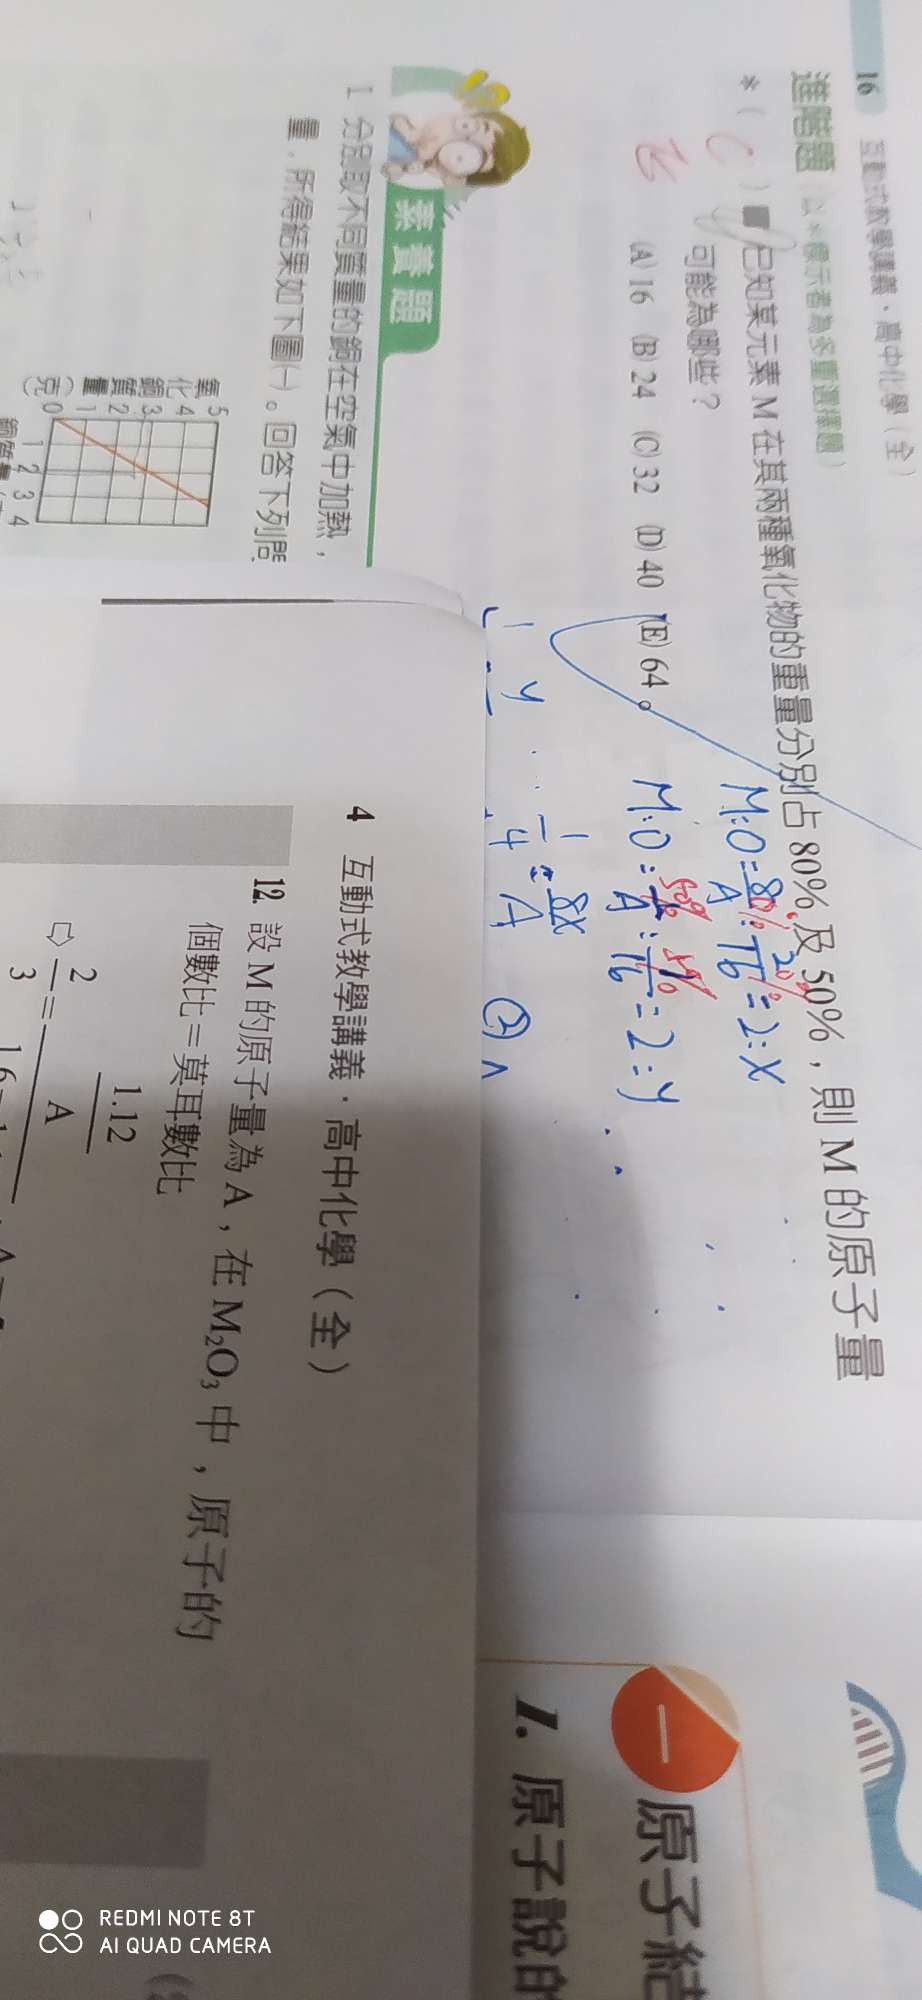 16 互動式教學講義．高中化學（全）
進階題（以＊標示者為多重選擇題）
＊（C E）■ 已知某元素 M 在其兩種氧化物的重量分別占 80% 及 50%，則 M 的原子量
可能為哪些？
(A) 16 (B) 24 (C) 32 (D) 40 (E) 64。
M:O = 80%/A : 20%/16 = 2:X
M:O = 50%/A : 50%/16 = 2:y
y
1/4 = 8x/A
②
素養題
1 分別取不同質量的銅在空氣中加熱，
量，所得結果如下圖(一)。回答下列問
氧化銅質量（克）
5
4
3
2
1
0
1 2 3 4
4 互動式教學講義．高中化學（全）
12. 設 M 的原子量為 A，在 M₂O₃ 中，原子的
個數比＝莫耳數比
1.12
⇨ 2/3 = A
一 原子結
1. 原子說的
REDMI NOTE 8T
AI QUAD CAMERA